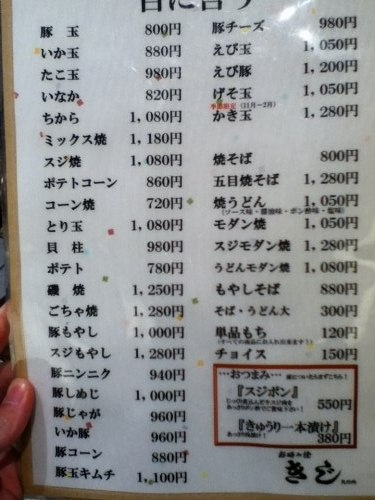 豚玉 800円
いか玉 880円
たこ玉 980円
いなか 820円
ちから 1,080円
ミックス焼 1,180円
スジ焼 1,080円
ポテトコーン 860円
コーン焼 720円
とり玉 1,080円
貝柱 980円
ポテト 780円
磯焼 1,250円
ごちゃ焼 1,280円
豚もやし 1,000円
スジもやし 1,280円
豚ニンニク 940円
豚しめじ 1,000円
豚じゃが 960円
いか豚 960円
豚コーン 880円
豚玉キムチ 1,100円
豚チーズ 980円
えび玉 1,050円
えび豚 1,200円
げそ玉 1,050円
季節限定(11月〜2月)
かき玉 1,280円
焼そば 800円
五目焼そば 1,280円
焼うどん 1,050円
(ソース味・醤油味・ポン酢味・塩味)
モダン焼 1,050円
スジモダン焼 1,280円
うどんモダン焼 1,080円
もやしそば 880円
そば・うどん大 300円
単品もち 120円
(すべての商品にお入れ出来ます!)
チョイス 150円
…おつまみ…
『スジポン』
550円
『きゅうり一本漬け』
380円
お好み焼
きじ
丸の内